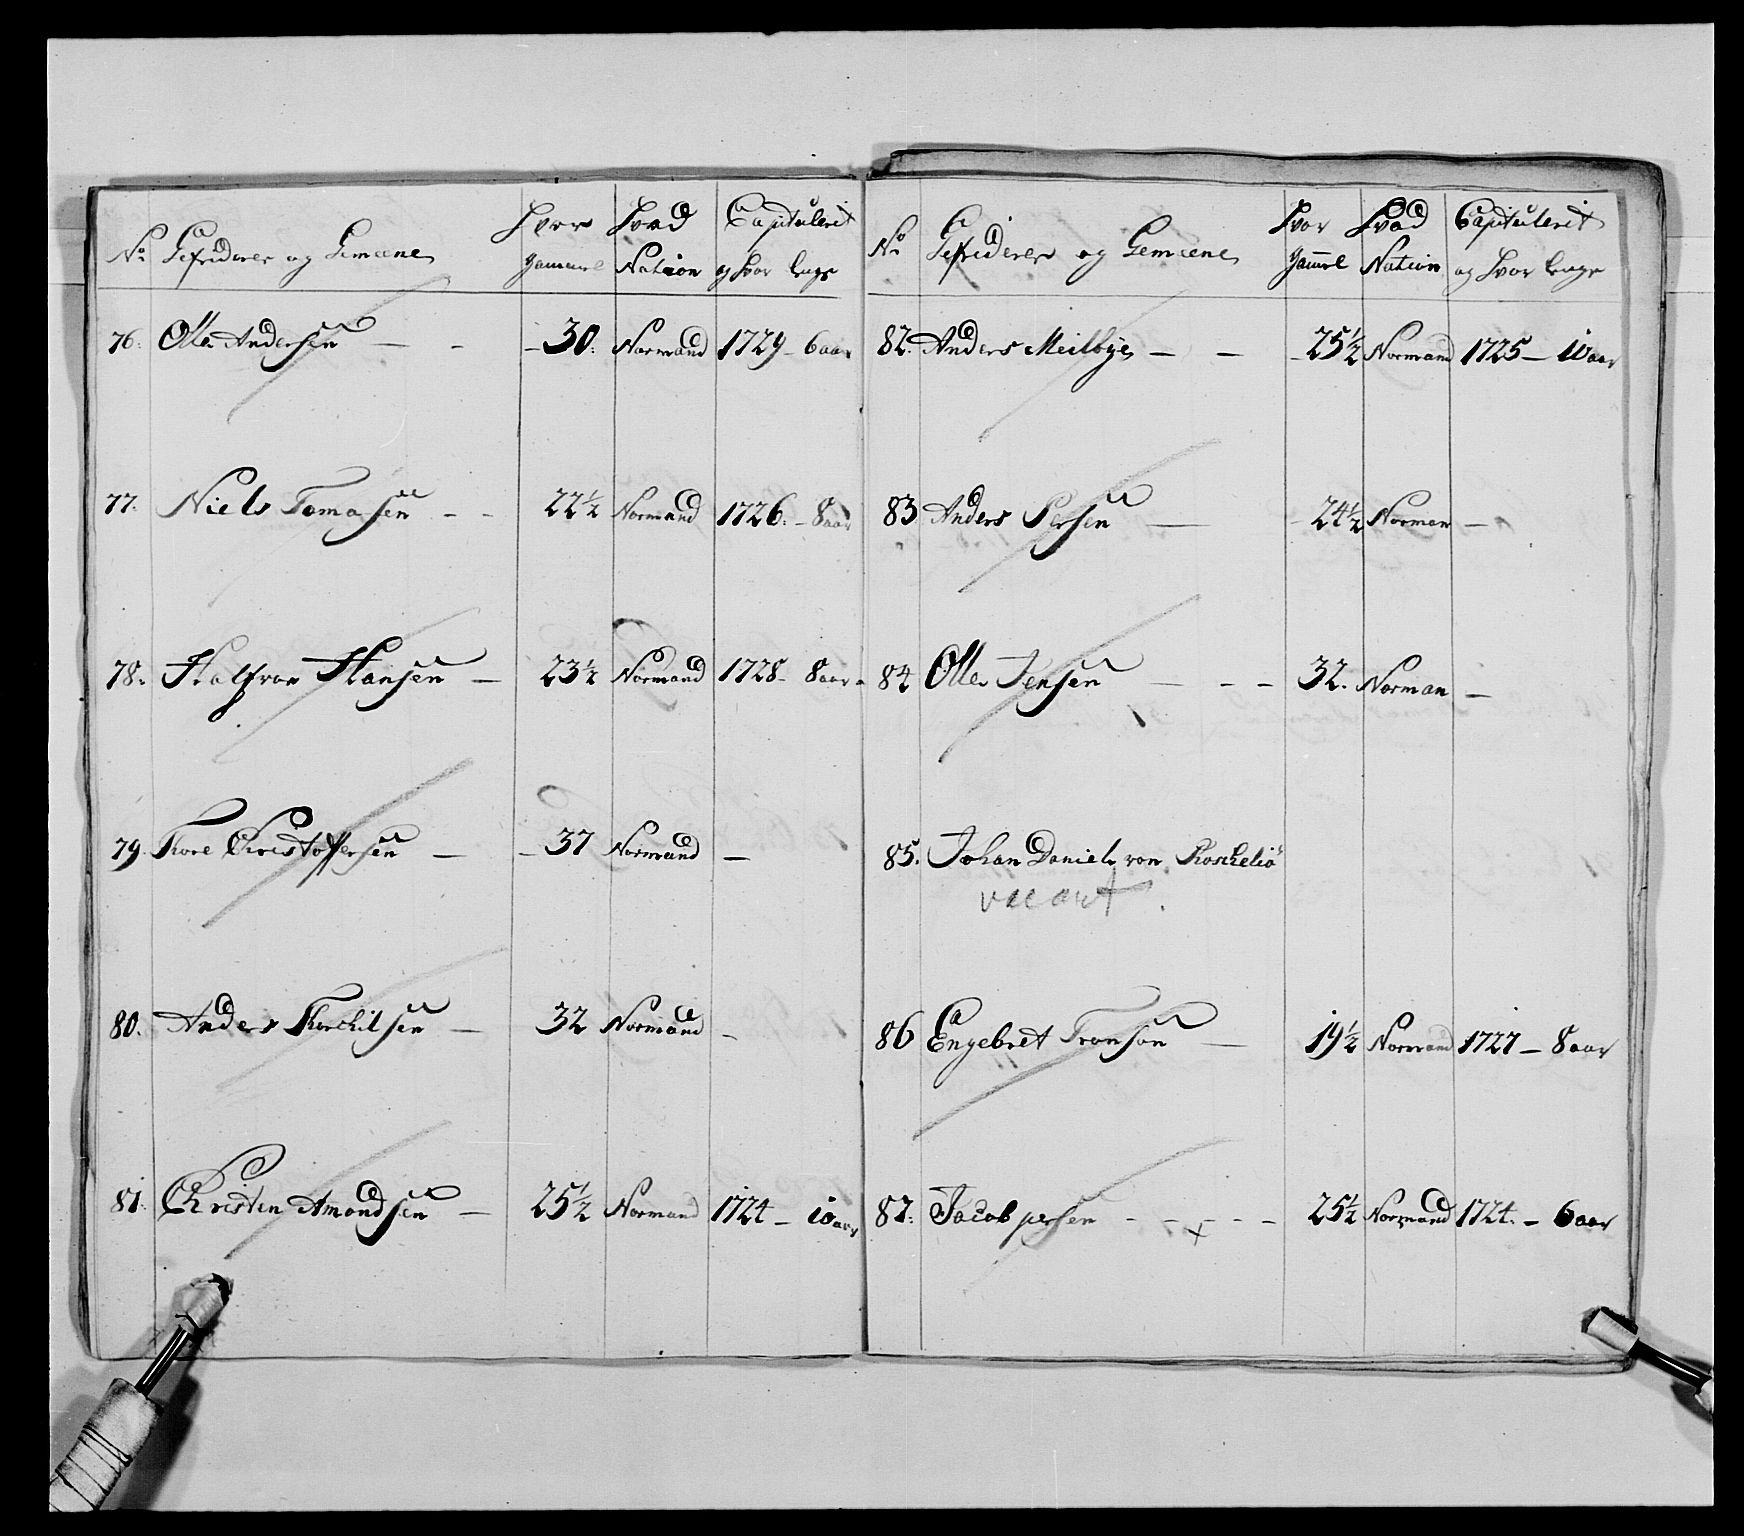 No Gefriderer og Gemeene Hvor Gammel Hvad Nation Capituleret og Hvor lenge
76. Olle Andersen - - - 30. Normand 1729 - 6 aar
77. Niels Tomasen - - 22½ Normand 1726. - 8 aar
78. Halfvor Hansen - 23½ Normand 1728 - 8 aar -
79. Tore Christoffersen - - 37 Normand -
80. Anders Torchilsen - 32 Normand -
81. Christen Amondsen - 25½ Normand 1724 - 10 aar
No Gefriderer og Gemeene Hvor Gammel Hvad Nation Capituleret og Hvor lenge
82. Anders Meilbye - - - 25½ Normand 1725 - 10 aar
83 Anders Persen - - 24½ Norman -
84 Olle Jensen - - - 32. Norman -
85. Johan Daniel von
vacant
86 Engebret Tronson - 19½ Normand 1727 - 8 aar
87. Jacob persen - - - - - 25½ Normand 1724. - 6 aar
x